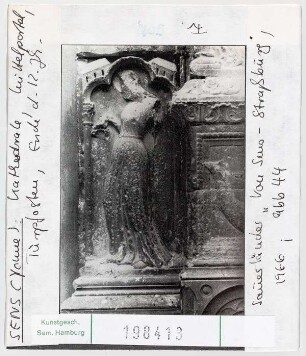 SENS (Yonne), Kathedrale, Mittelportal,
Türpfosten, Ende d. 12. Jh.
Sauerländer, Von Sens - Straßburg,
1966, Abb 44
Kunstgesch.
Sem. Hamburg
198413